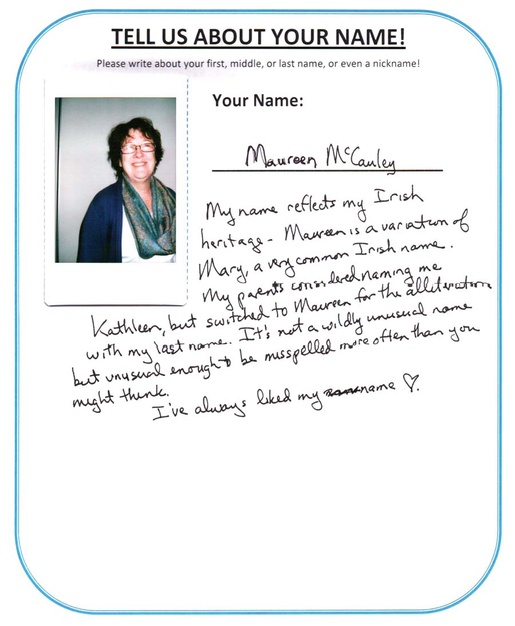 TELL US ABOUT YOUR NAME!
Please write about your first, middle, or last name, or even a nickname!
Your Name:
Maureen McCauley
My name reflects my Irish
heritage - Maureen is a variation of
Mary, a very common Irish name.
My parents considered naming me
Kathleen, but switched to Maureen for the alliteration
with my last name. It's not a wildly unusual name
but unusual enough to be misspelled more often than you
might think.
I've always liked my name ♡.